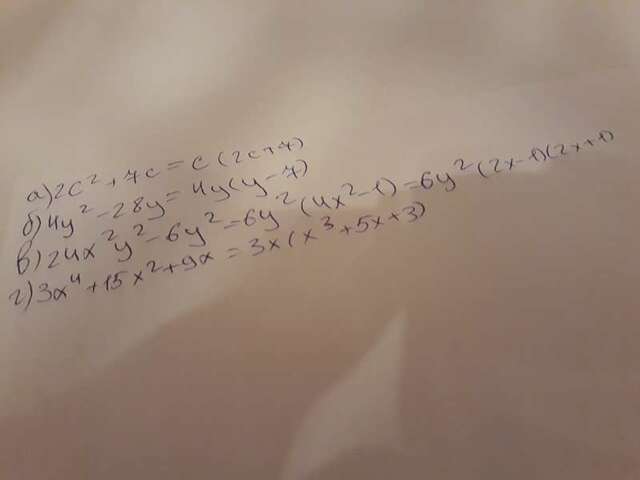 а) 2c² + 7c = c (2c+7)
б) 4y² - 28y = 4y(y - 7)
в) 24x²y² - 6y² = 6y² (4x² - 1) = 6y² (2x-1)(2x+1)
г) 3x⁴ + 15x² + 9x = 3x (x³ + 5x + 3)